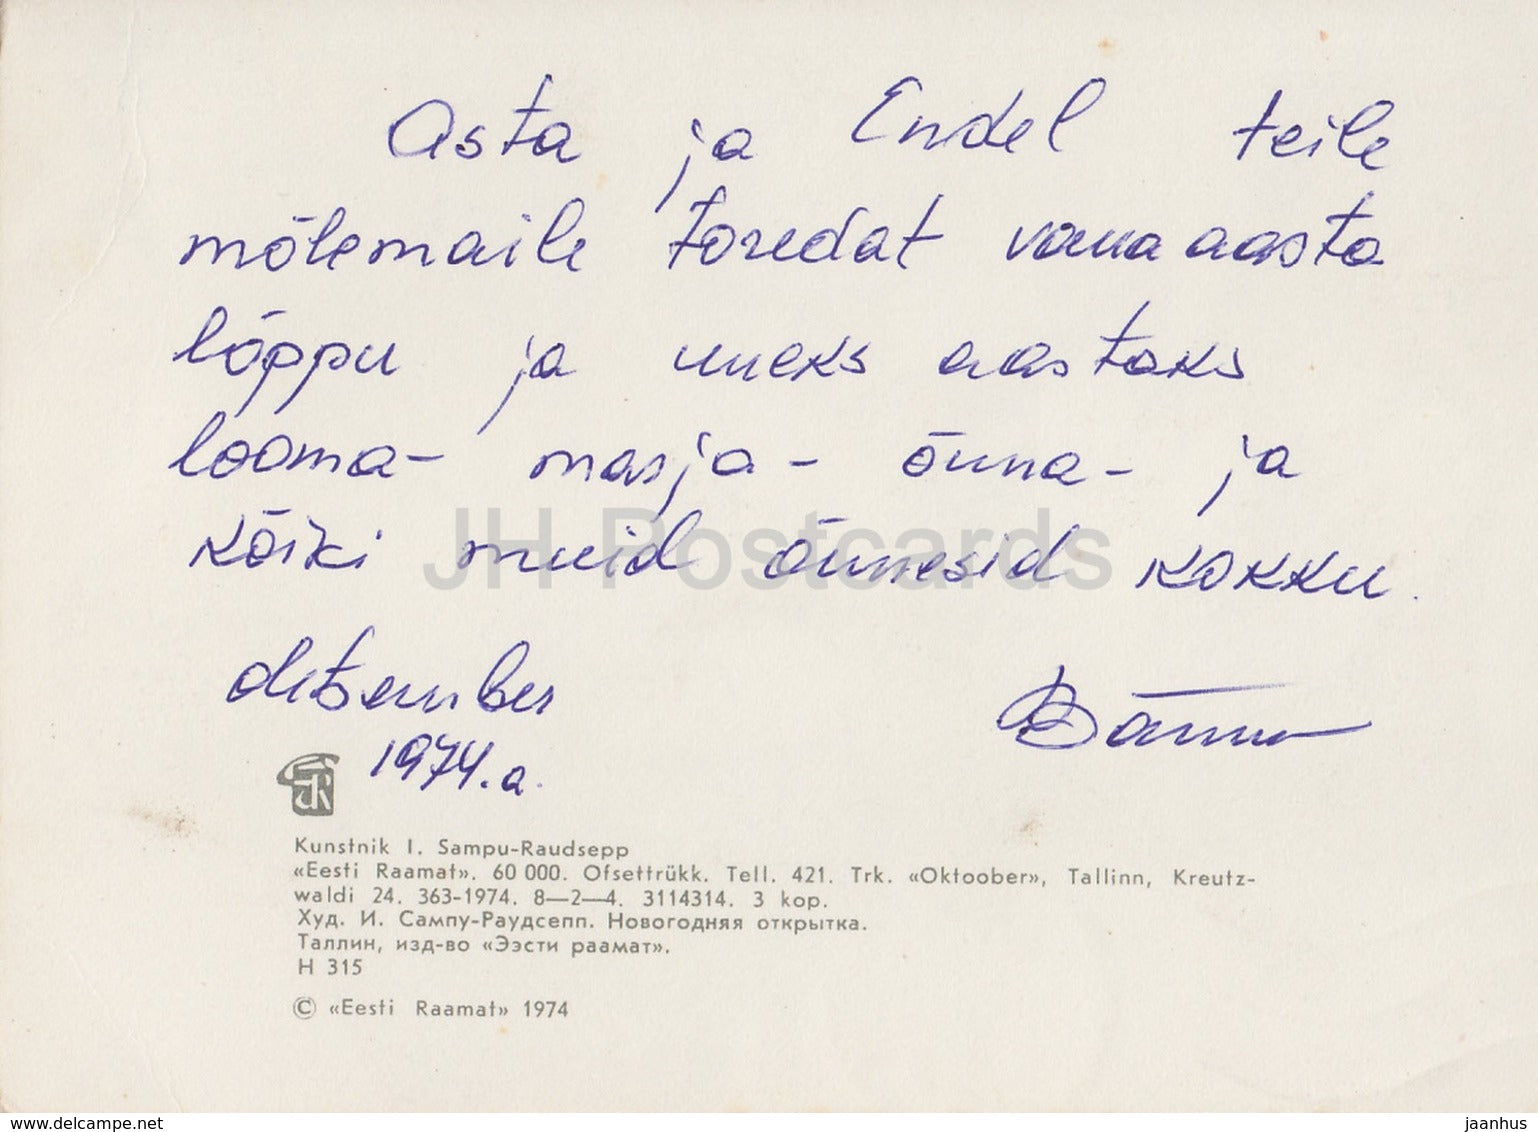 Asta ja Endel teile
mõlemaile toredat vana aasta
lõppu ja uueks aastaks
looma- marja- õuna- ja
kõiki muid õnnesid kokku.
detsember
1974. a.
JH Postcards
Kunstnik I. Sampu-Raudsepp
«Eesti Raamat». 60 000. Ofsettrükk. Tell. 421. Trk. «Oktoober», Tallinn, Kreutz-
waldi 24. 363-1974. 8—2—4. 3114314. 3 kop.
Худ. И. Сампу-Раудсепп. Новогодняя открытка.
Таллин, изд-во «Ээсти раамат».
Н 315
© «Eesti Raamat» 1974
www.delcampe.net
jaanhus